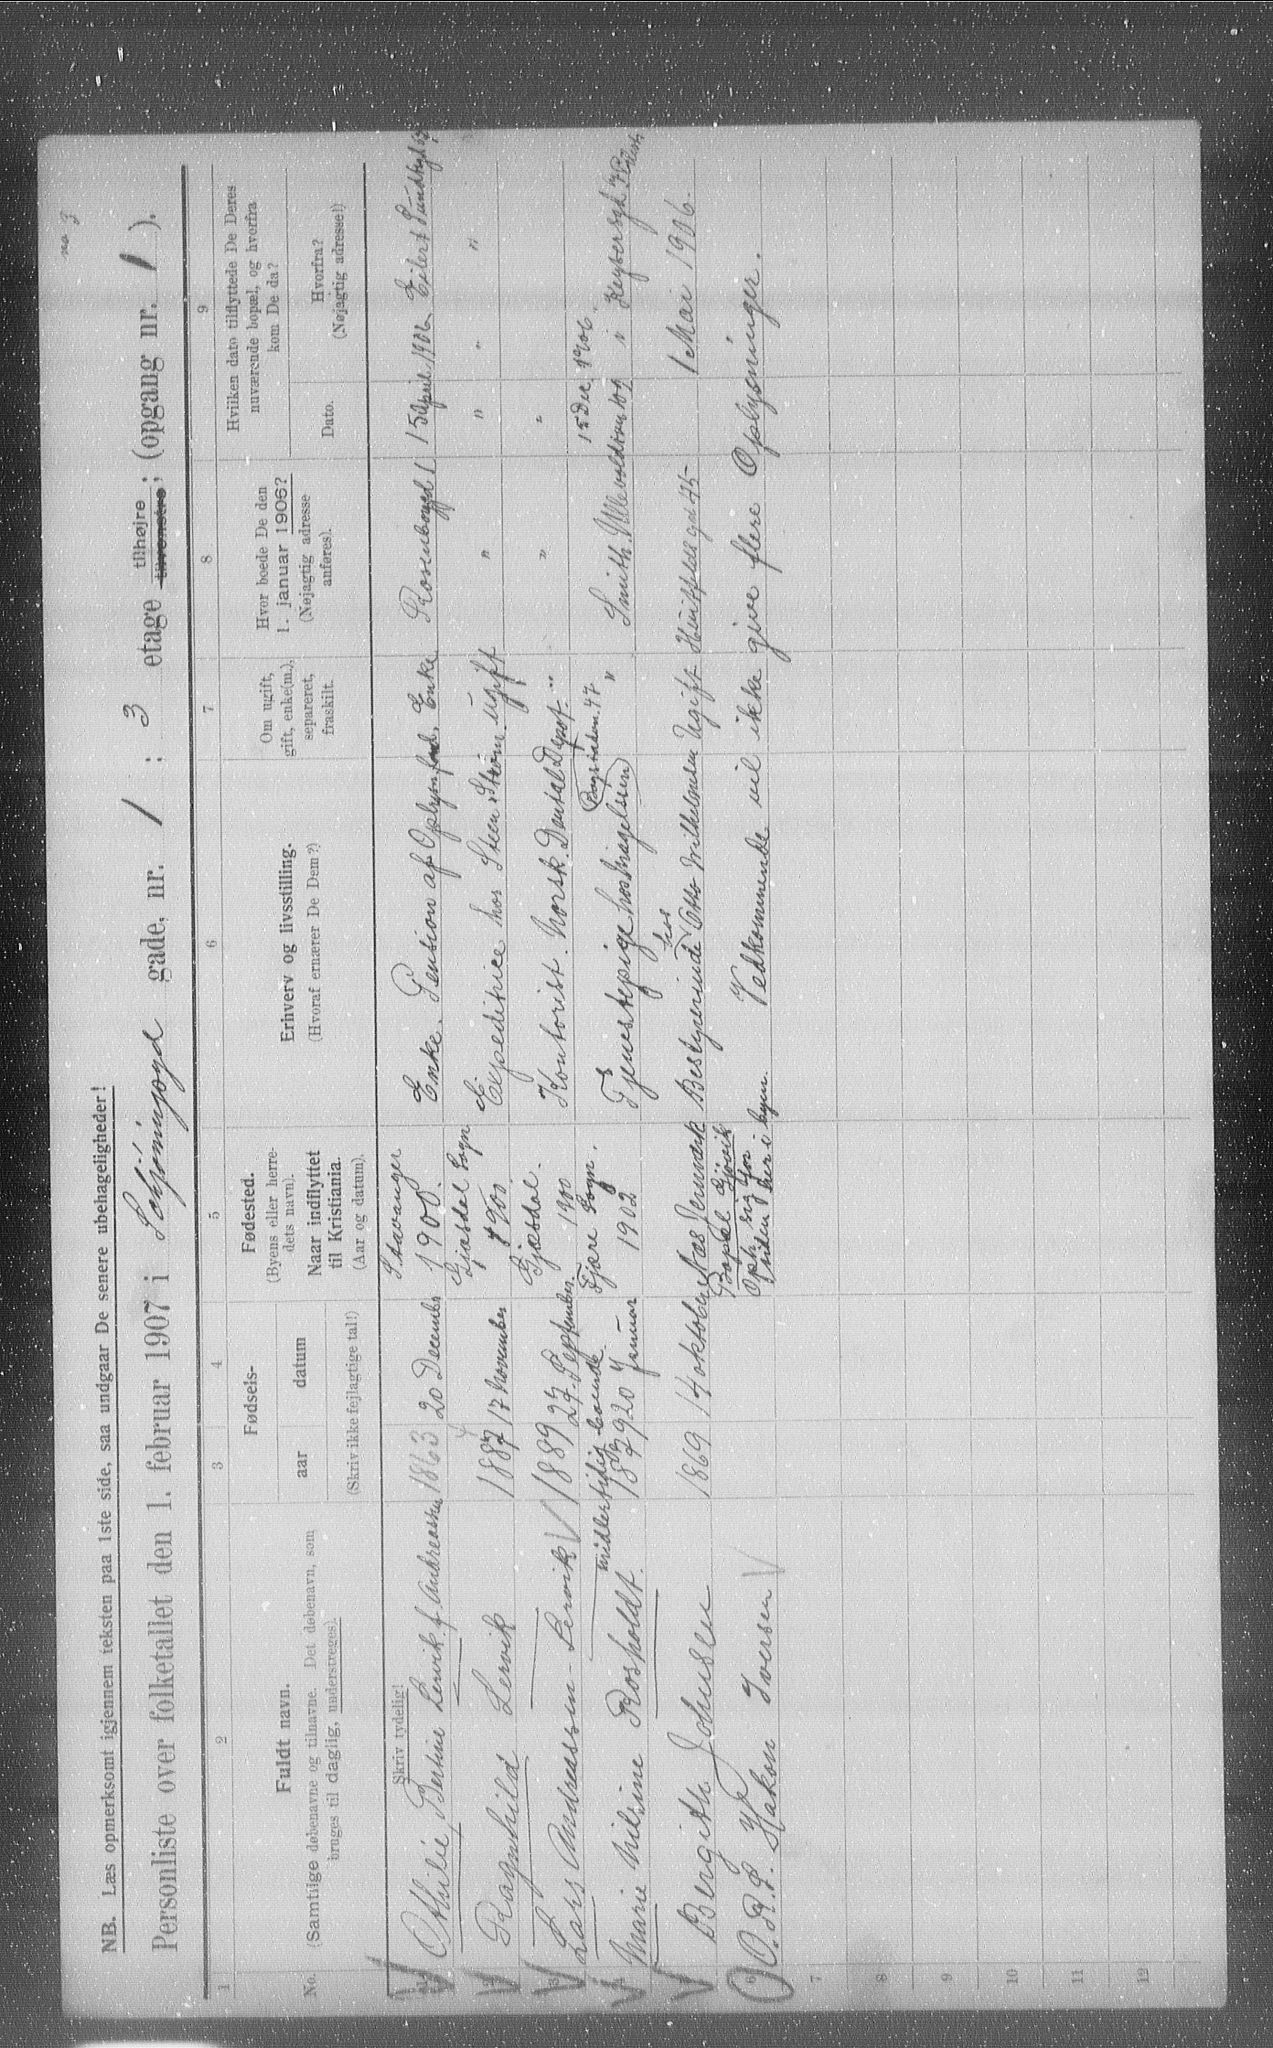 no 3
NB. Læs opmerksomt igjennem teksten paa 1ste side, saa undgaar De senere ubehageligheder!
Personliste over folketallet den 1. februar 1907 i Schjöningsgd gade, nr. 1 : 3 etage tilhøjre tilvenstre; (opgang nr. 1 ).
1 2 3 4 5 6 7 8 9
No.
Fuldt navn.
(Samtlige døbenavne og tilnavne. Det døbenavn, som
bruges til daglig, understreges).
Fødsels-
aar datum
(Skriv ikke fejlagtige tal!)
Fødested.
(Byens eller herre-
dets navn).
Naar indflyttet
til Kristiania.
(Aar og datum).
Erhverv og livsstilling.
(Hvoraf ernærer De Dem?)
Om ugift,
gift, enke(m.),
separeret,
fraskilt.
Hvor boede De den
1. januar 1906?
(Nøjagtig adresse
anføres).
Hvilken dato tilflyttede De Deres
nuværende bopæl, og hvorfra
kom De da?
Dato.
Hvorfra?
(Nøjagtig adresse!)
Skriv tydelig!
1 Othilie Bertine Lervik f. Andreassen 1863 20 December Stavanger 1900. Enke. Pention af Enke Rosenborggd 1 15 April 1906 Eilert Sundtsgd
2 Ragnhild Lervik 1887 17 November Gjæsdal Sogn 1900. Expeditrice hos Steen Strøm ugift " " " "
3 Lars Andreassen Lervik 1889 27 September Gjæsdal. 1900 Kontorist. Norsk Dental Depot " " "
midlertidig boende
4 Marie Nilsine Rosholdt. 1879 20 Januar Fjære Sogn. 1902 Tjenestepige hos " Smith. Ullevoldsvn 109 15 Dec. 1906.
5 Bergith Johnsen 1869 14 oktober Næs Jernværk Bestyrerinde hos Otto Wilhelmsen Ugift 1 Mai 1906.
Bopæl Gjövik
Oph. sig for
tiden her i byen.
6 O. R. P. Hakon Iversen Vedkommende vil ikke give flere Oplysninger.
7
8
9
10
11
12